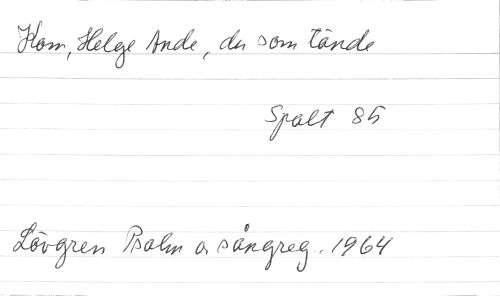 Kom, Helge Ande, du som tände
Spalt 85
Lövgren Psalm o. sångreg. 1964